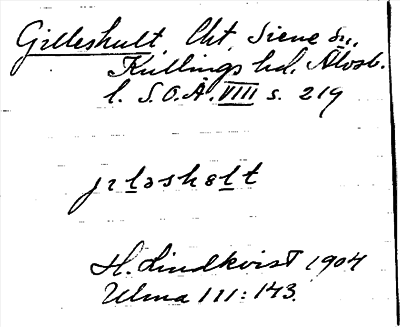 Gilleshult, Cht, Siene sn.,
Kullings hd. Älvsb.
l. S.O.Ä. VIII s. 219
jɪləshɵlt
H. Lindkvist 1904
Ulma 111:143.